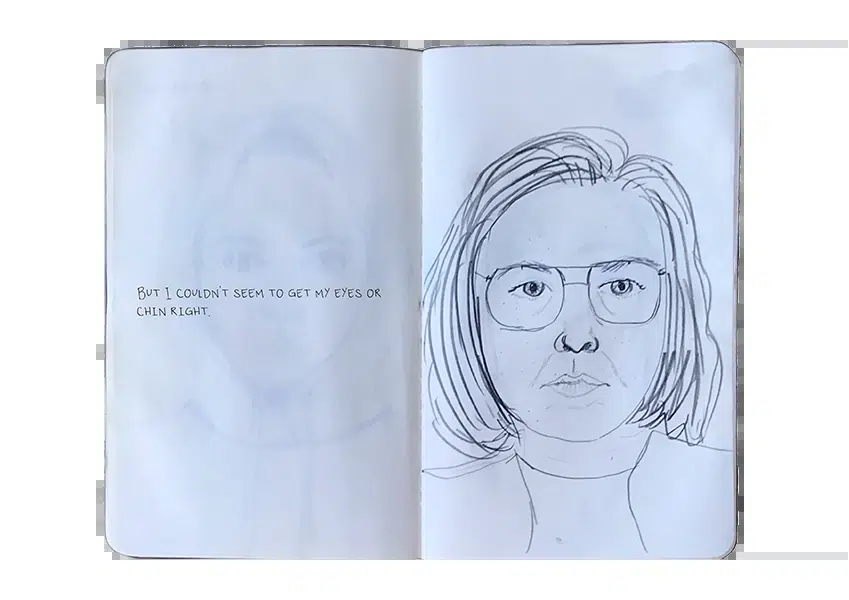 BUT I COULDN'T SEEM TO GET MY EYES OR
CHIN RIGHT.